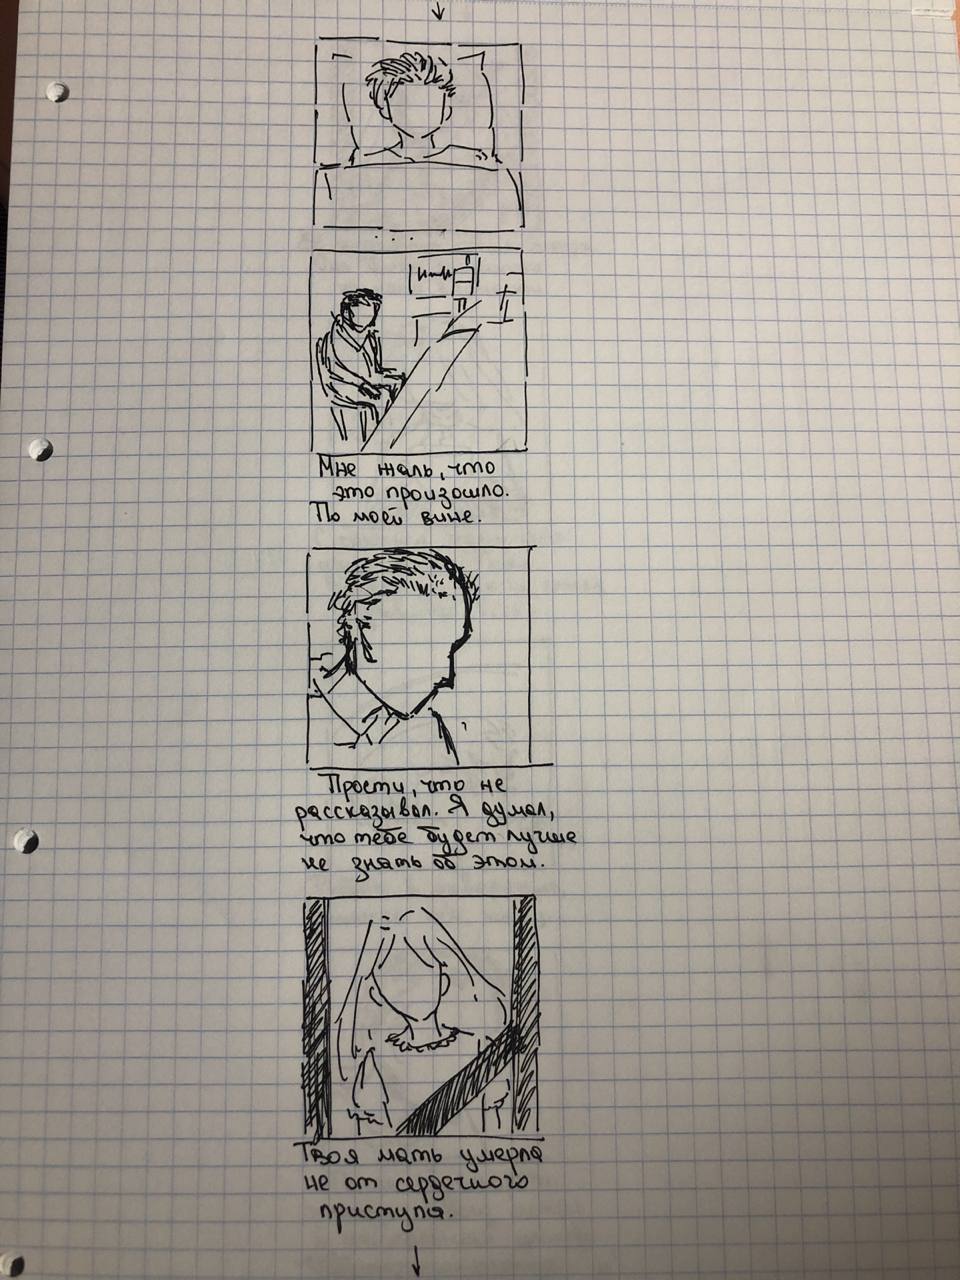 Мне жаль, что
это произошло.
По моей вине.
Прости, что не
рассказывал. Я думал,
что тебе будет лучше
не знать об этом.
Твоя мать умерла
не от сердечного
приступа.